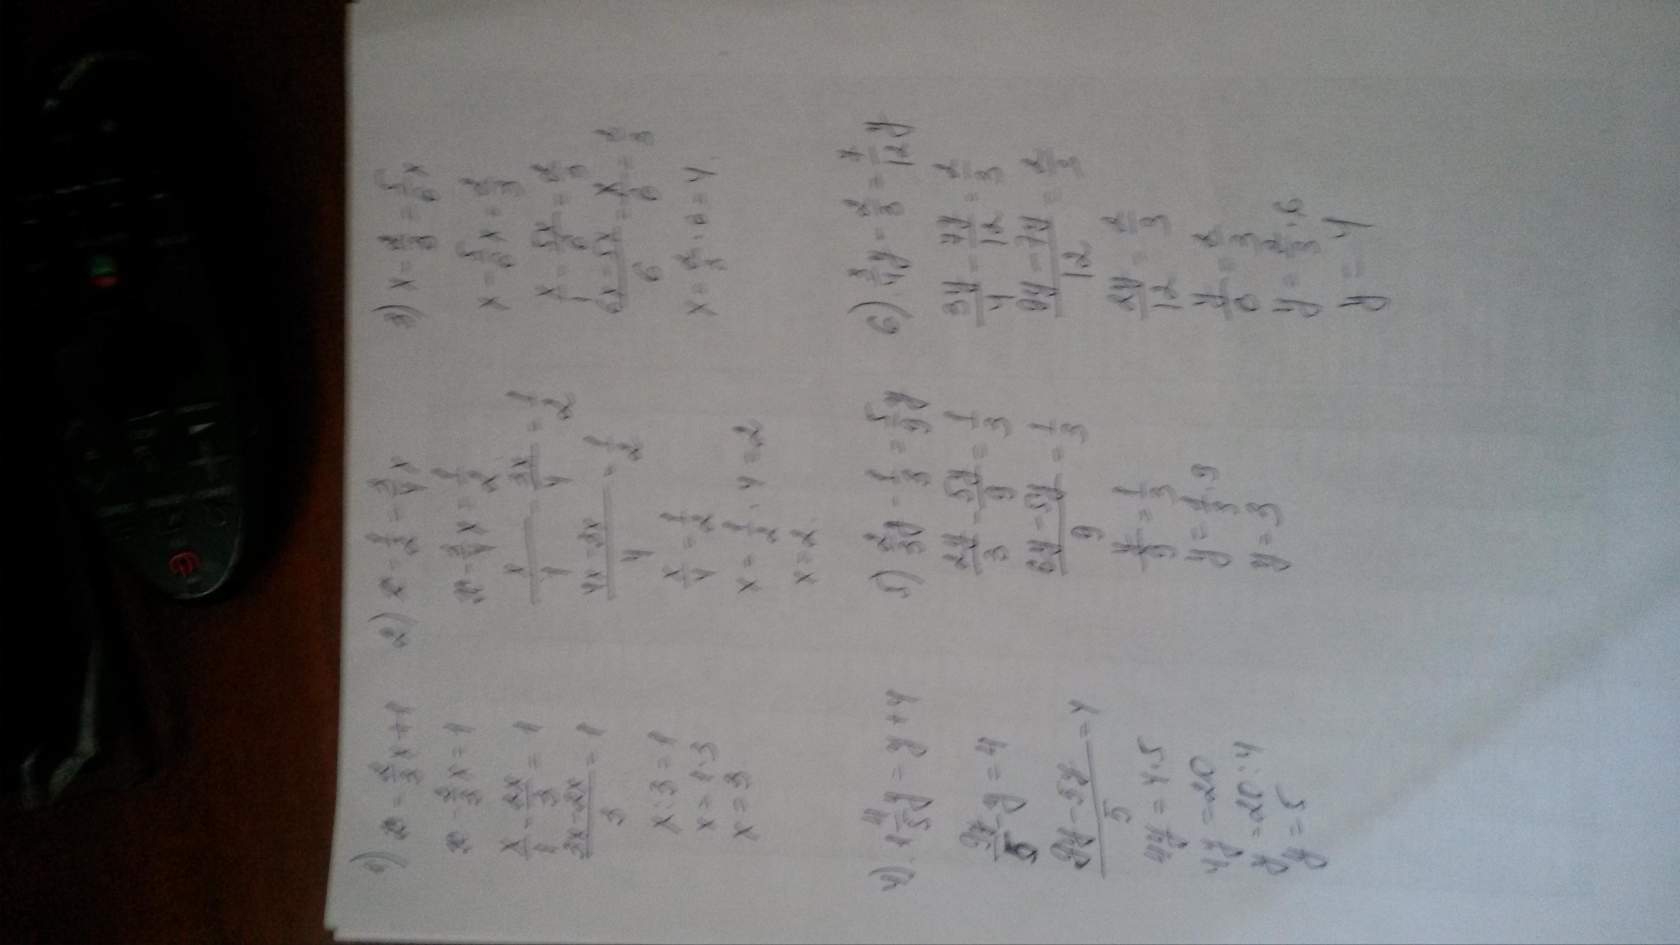 1) x = 2/3 x + 1
x - 2/3 x = 1
x/1 - 2x/3 = 1
3x - 2x/3 = 1
x : 3 = 1
x = 1 · 3
x = 3
2) x - 1/2 = 3/4 x
x - 3/4 x = 1/2
x/1 - 3x/4 = 1/2
4x - 3x/4 = 1/2
x/4 = 1/2
x = 1/2 · 4 = 2
x = 2.
3) x - 2/3 = 5/6 x
x - 5/6 x = 2/3
x/1 - 5x/6 = 2/3
6x - 5x/6 = x/6 = 2/3
x = 2/3 · 6 = 4.
4) 1 4/5 y = y + 4
9y/5 - y = 4
9y - 5y/5 = 4
4y = 4 · 5
4y = 20
y = 20 : 4
y = 5
5) 2/3 y - 1/3 = 5/9 y
2y/3 - 5y/9 = 1/3
6y - 5y/9 = 1/3
y/9 = 1/3
y = 1/3 · 9
y = 3
6) 3/4 y - 2/3 = 7/12 y
3y/4 - 7y/12 = 2/3
9y - 7y/12 = 2/3
2y/12 = 2/3
y/6 = 2/3
y = 2/3 · 6
y = 4